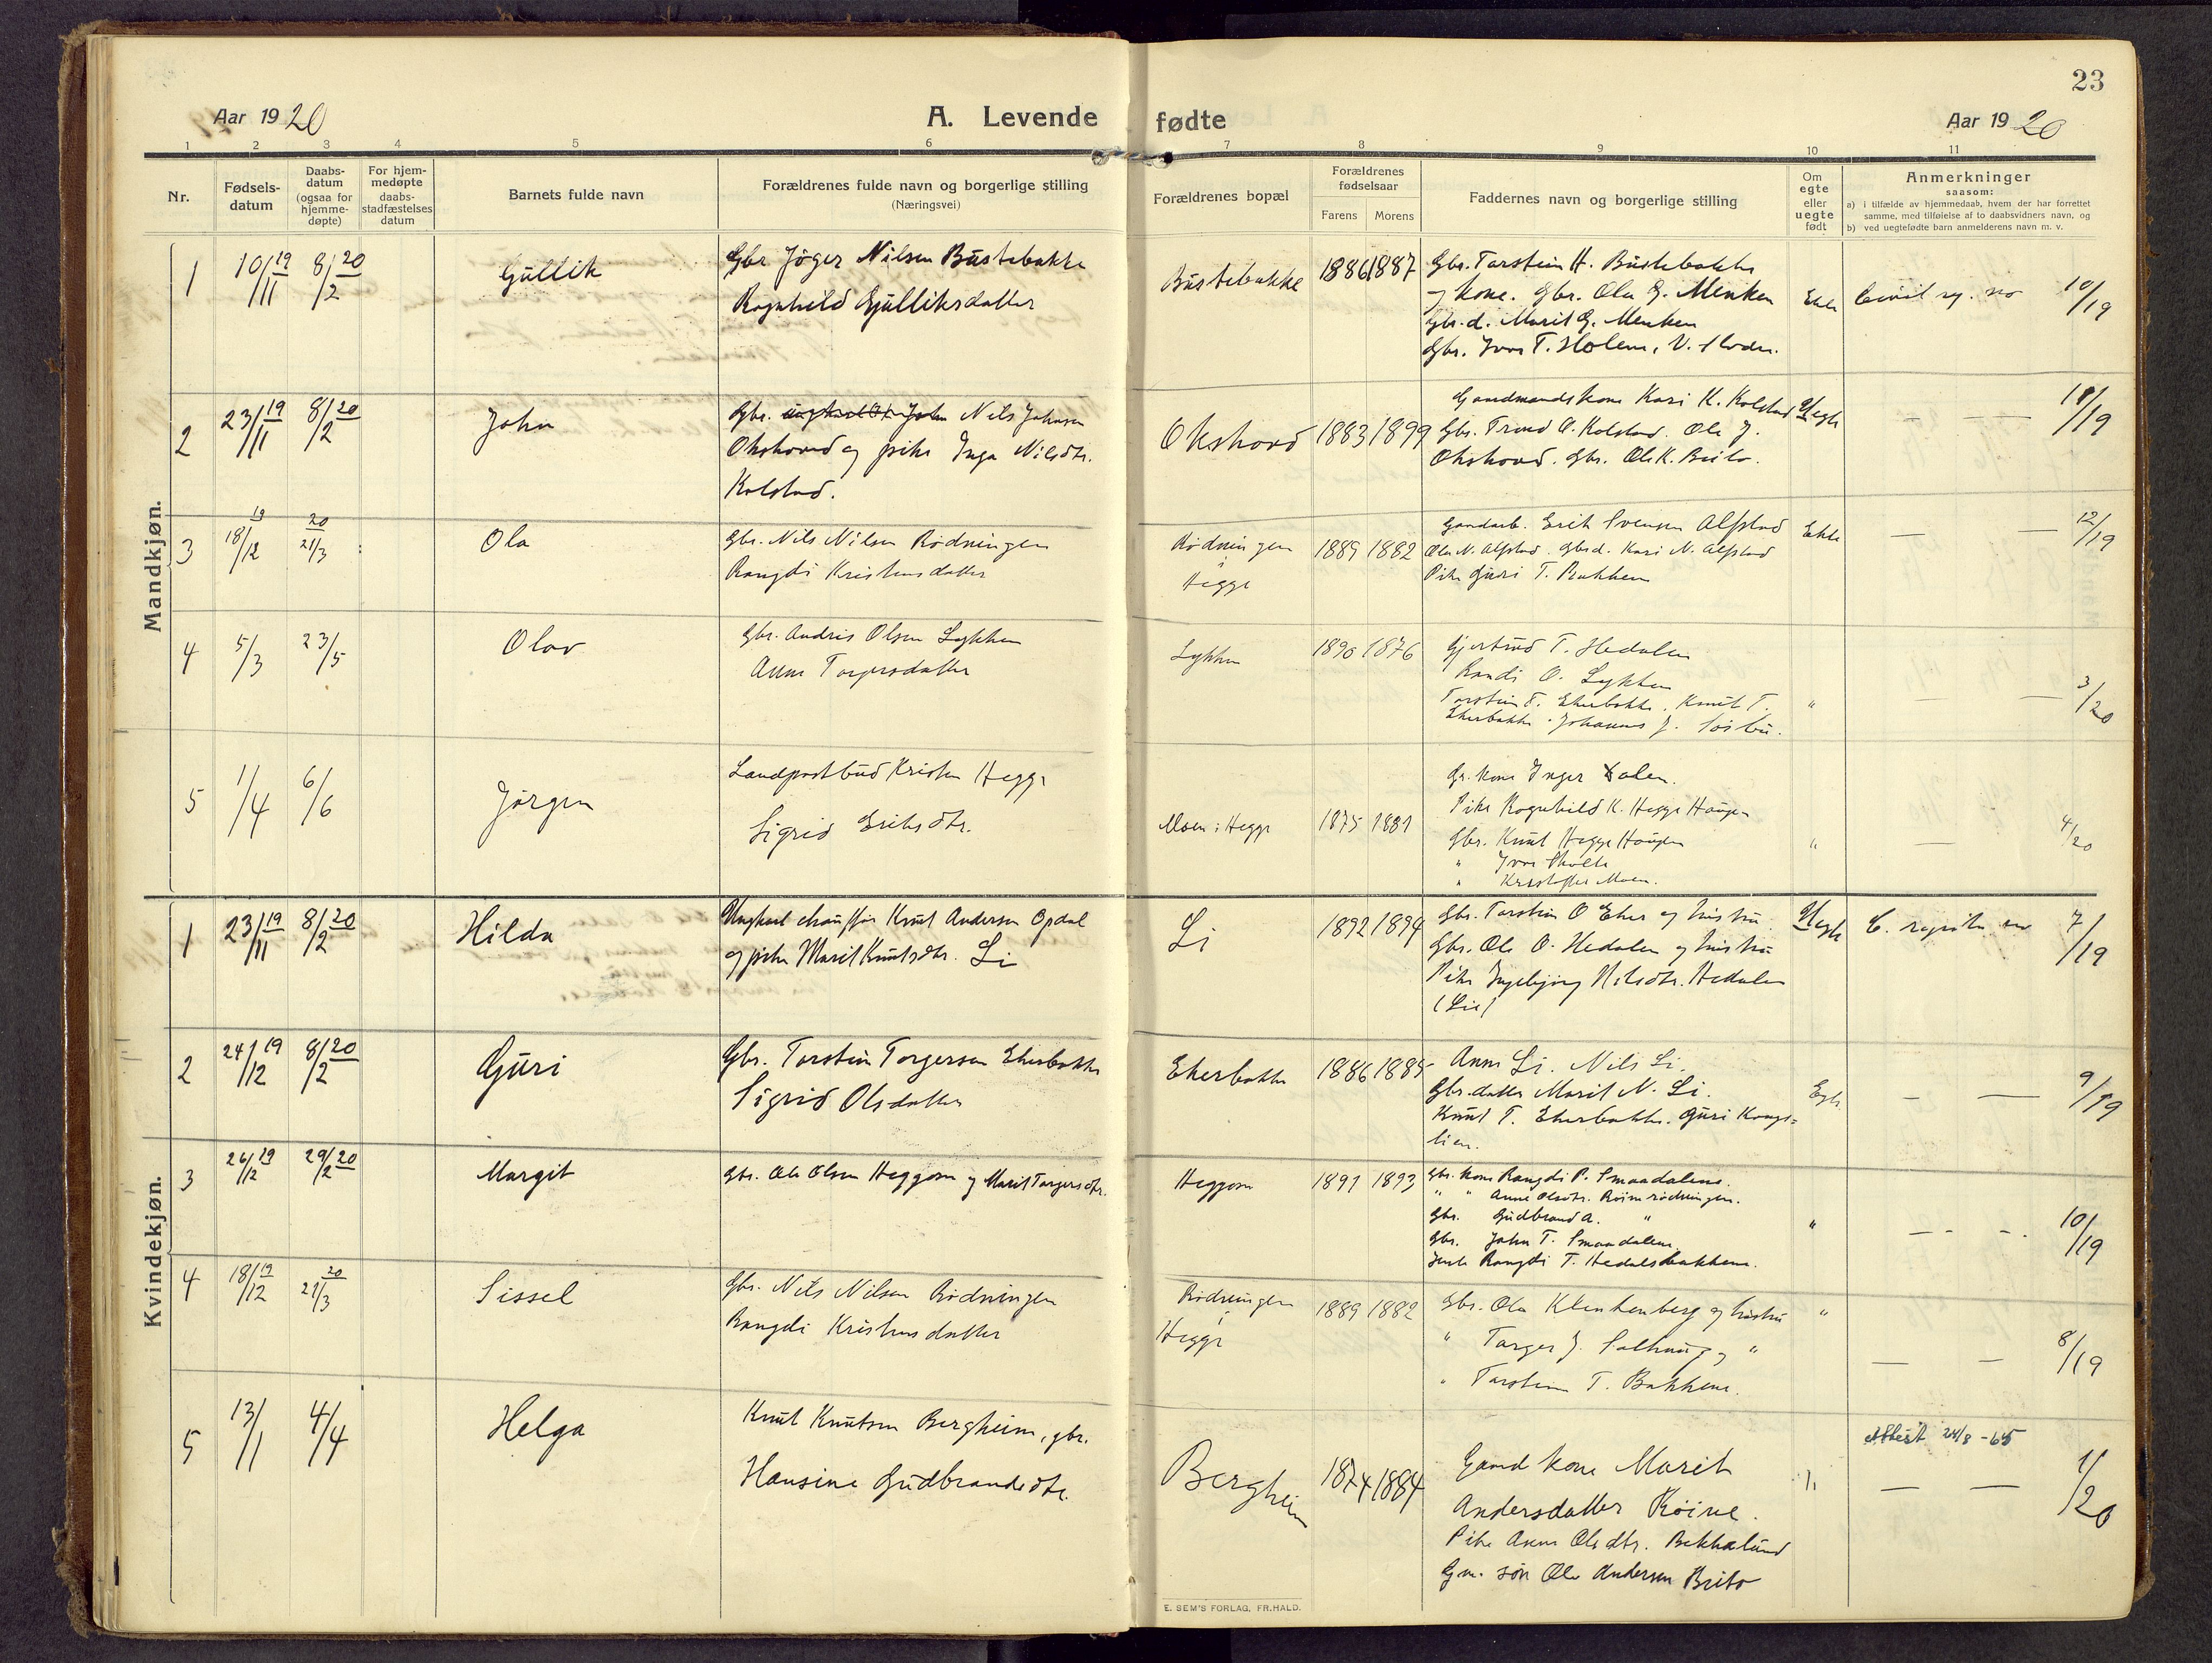 23
Aar 1920
A. Levende fødte
Aar 1920
1 2 3 4 5 6 7 8 9 10 11
Nr.
Fødsels-
datum
Daabs-
datum
(ogsaa for
hjemme-
døpte)
For hjem-
medøpte
daabs-
stadfæstelses
datum
Barnets fulde navn
Forældrenes fulde navn og borgerlige stilling
(Næringsvei)
Forældrenes bopæl
Forældrenes
fødselsaar
Farens Morens
Faddernes navn og borgerlige stilling
Om
egte
eller
uegte
født
Anmerkninger
saasom:
a) i tilfælde av hjemmedaab, hvem der har forrettet
samme, med tilføielse af to daabsvidners navn, og
b) ved uegtefødte barn anmelderens navn m. v.
Mandkjøn.
1 10/11 19 8/2 20 Gullik
Gbr Jøger Nilsen Bustebakke
Ragnhild Gulliksdatter
Bustebakke 1886 1887
Gbr. Torstein H. Bustebakke
og kone. Gbr. Ola G. Menken
Gbr.d. Marit G. Menken
Gbr. Ivar T. Holene, V. Slidre.
Ekte Civil reg. no 10/19
2 23/11 19 8/2 20 John
Gbr. Nils Johnsen
Okshovd og pike Inga Nilsdtr.
Kolstad.
Okshovd 1883 1899
Gaardmandskone Kari K. Kolstad
Gbr. Trond O. Kolstad. Ole J.
Okshovd. Gbr. Ole K. Beito.
Uegte — — 18/19
3 18/12 19 21/3 20 Ola
Gbr. Nils Nilsen Rødningen
Rangdi Kristensdatter
Rødningen
i
Hegge
1889 1882
Gaardarb. Erik Svensen Alfstad
Ola N. Alfstad. Gbrd. Kari N. Alfstad
Pike Guri T. Bakken
Ekte — — 12/19
4 5/3 23/5 Olav
Gbr. Andris Olsen Lykken
Anne Torgersdatter
Lykken 1890 1876
Gjertrud T. Hedalen
Randi O. Lykken
Torstein T. Ekerbakke. Knut T.
Ekerbakke. Johannes J.
" — — 3/20
5 1/4 6/6 Jørgen
Landpostbud Kristen Hegge
Sigrid Eriksdtr.
Moen i Hegge 1875 1881
Gr. kone Inger Dalen.
Pike Ragnhild K. Hegge Haugen
Gbr. Knut Hegge Haugen
" Ivar Skolte
" Kristoffer Moen.
" — 4/20
Kvindekjøn.
1 23/11 19 8/2 20 Hilda
Ungkarl chauffør Knut Andersen Opdal
og pike Marit Knutsdtr. Li
Li 1892 1894
Gbr. Torstein O Eker og hustru
Gbr. Ole O. Hedalen og hustru
Pike Ingebjørg Nilsdtr. Hedalen
(Lie)
Uegte C. registr. no 7/19
2 24/12 19 8/2 20 Guri
Gbr. Torstein Torgersen Ekerbakke
Sigrid Olsdatter
Ekerbakke 1886 1885
Anne Li. Nils Li.
Gbr.datter Marit N. Li.
Knut T. Ekerbakke. Guri Kongs=
lien.
Egte. — — 9/19
3 26/12 19 29/2 20 Margit
Gbr. Ole Olsen Heggom og Marit Torgersdtr.
Heggom 1891 1893
Gbr. kone Rangdi P. Smaadalene.
" " Anne Olsdtr. Røinerødningen.
Gbr. Gudbrand A. "
Gbr. John T. Smaadalene
Rangdi T. Hedalsbakkene.
" — - — . 10/19
4 18/12 19 21/3 20 Sissel
Gbr. Nils Nilsen Rødningen
Rangdi Kristensdatter
Rødningen
i
Hegge
1889 1882
Gbr. Ola Klinkenberg og hustru
" Torger J. og "
" Torstein T. Bakkene.
" — — 8/19
5 13/1 4/4 Helga
Knut Knutsen Bergheim, gbr.
Hansine Gudbrandsdtr.
Bergheim 1874 1884
Gaardkone Marit
Andersdatter Røine.
Pike Anne Olsdtr. Bekkelund
Gm. søn Ole Andersen Beito
" Attest 24/8 -65
— — 1/20
E. SEM'S FORLAG, FR.HALD.